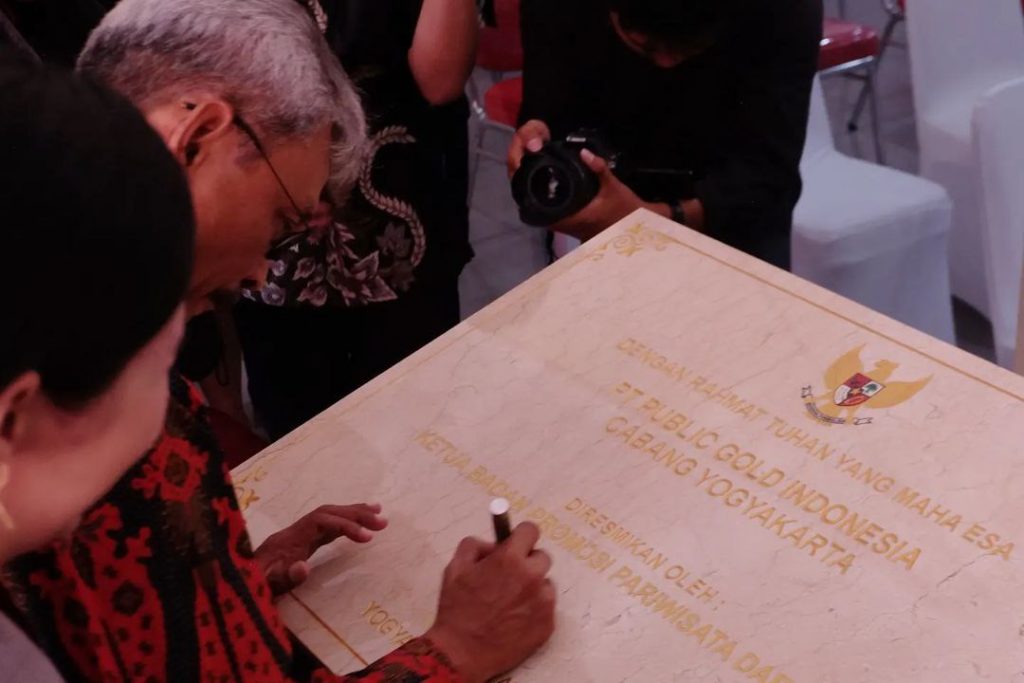 DENGAN RAHMAT TUHAN YANG MAHA ESA
PT PUBLIC GOLD INDONESIA
CABANG YOGYAKARTA
DIRESMIKAN OLEH :
KETUA BADAN PROMOSI PARIWISATA